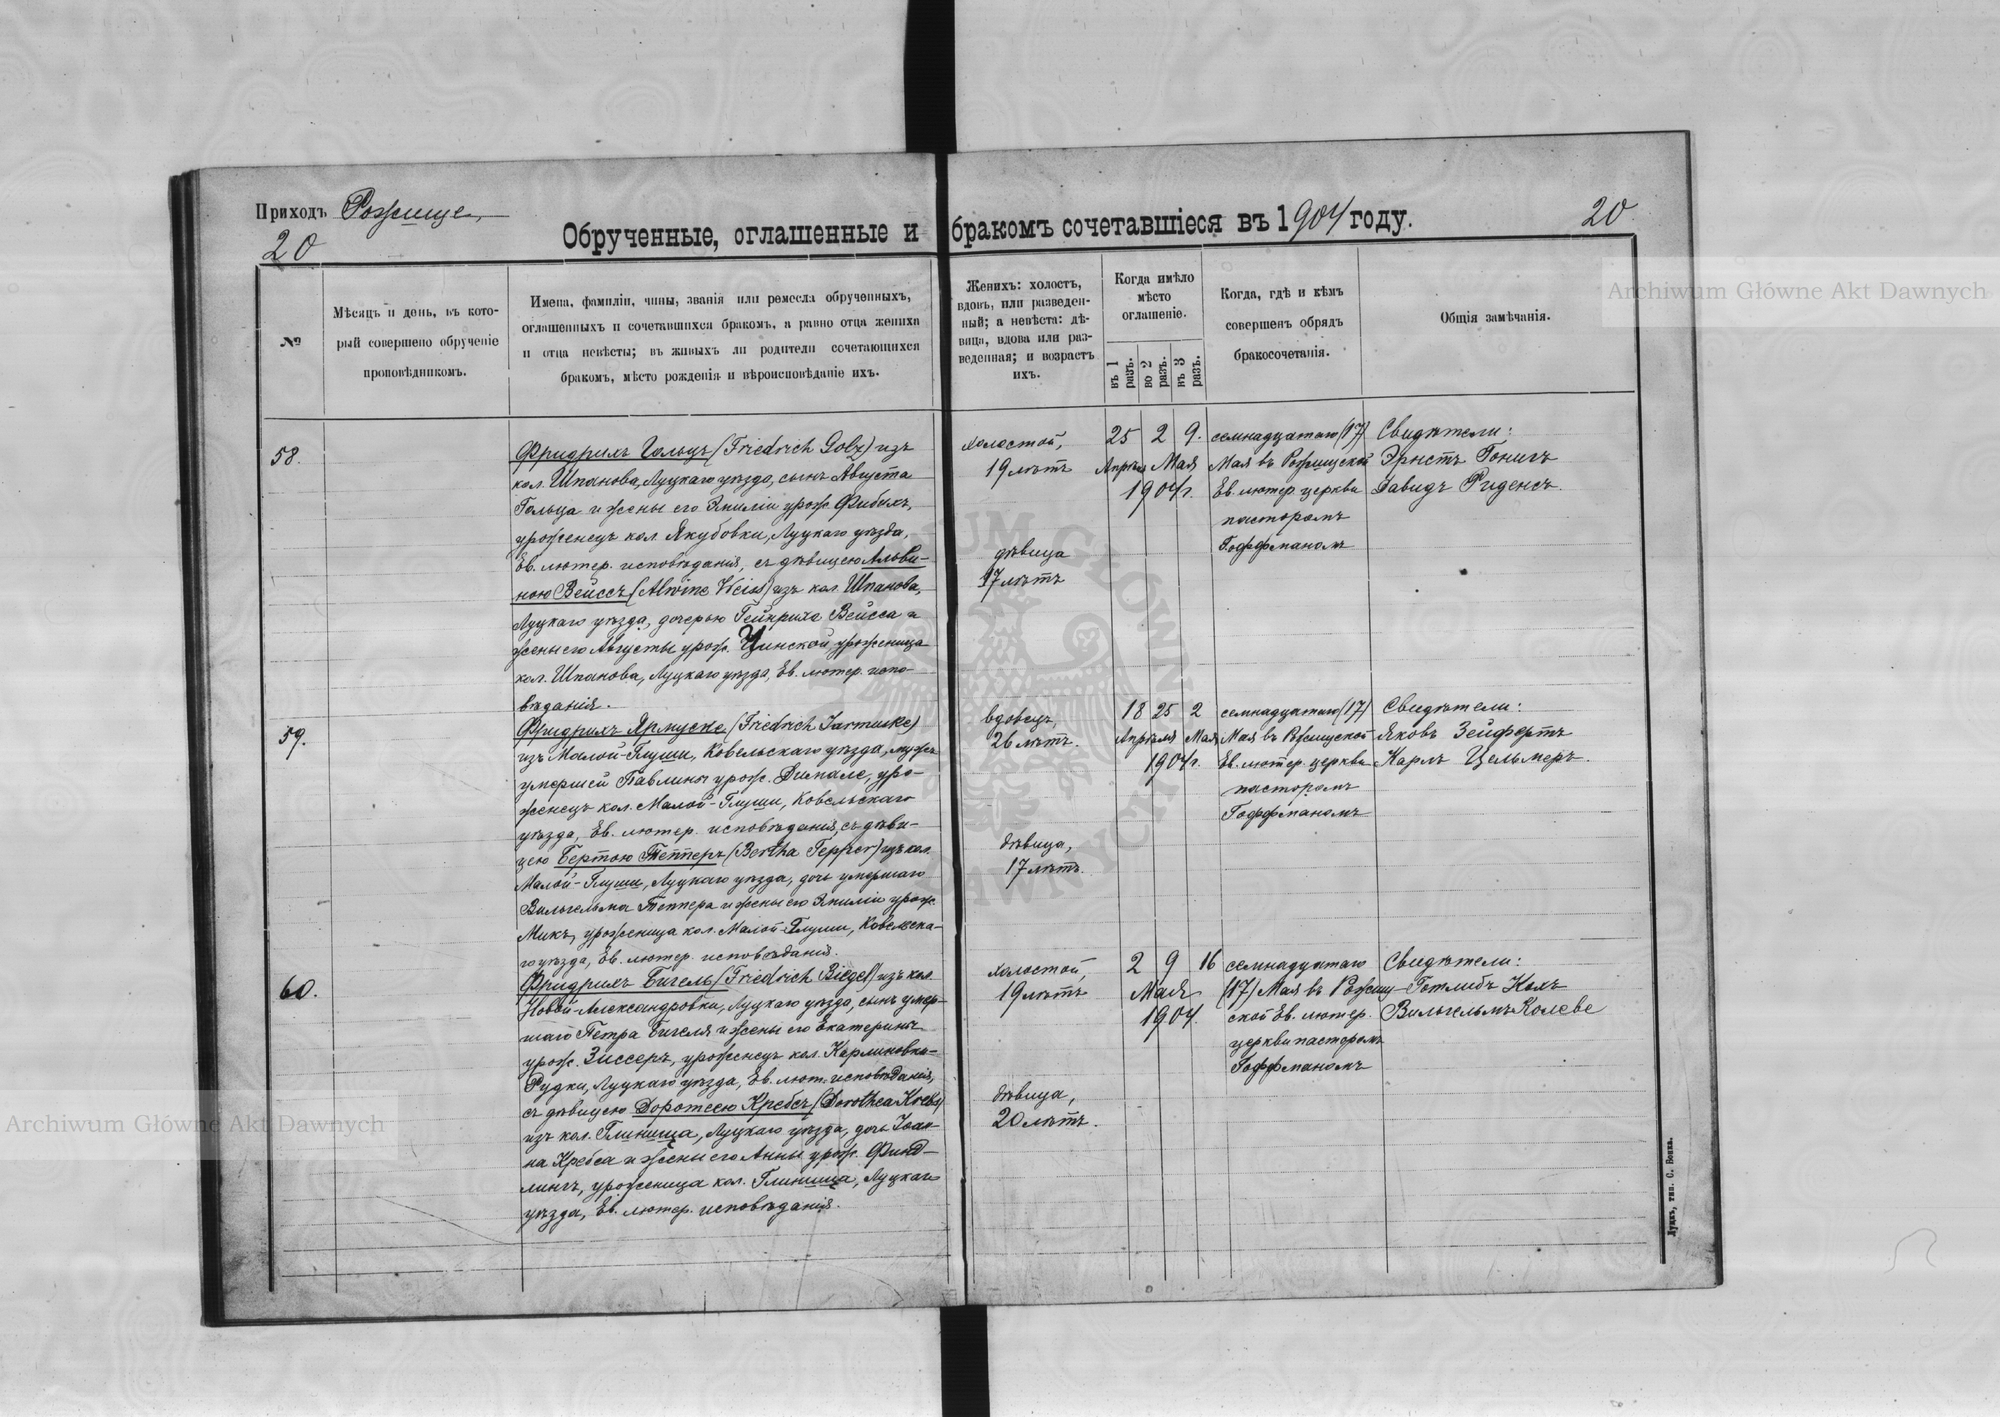 Приходъ Рожище
20
Обрученные, оглашенные и бракомъ сочетавшіеся въ 1904 году.
20
№
Мѣсяцъ и день, въ кото-
рый совершено обрученіе
проповѣдникомъ.
Имена, фамиліи, чины, званія или ремесла обрученныхъ,
оглашенныхъ и сочетавшихся бракомъ, а равно отца жениха
и отца невѣсты; въ живыхъ ли родители сочетающихся
бракомъ, мѣсто рожденія и вѣроисповѣданіе ихъ.
Женихъ: холостъ,
вдовъ, или разведен-
ный; а невѣста: дѣ-
вица, вдова или раз-
веденная; и возрастъ
ихъ.
Когда имѣло
мѣсто
оглашеніе.
въ 1
разъ.
во 2
разъ.
въ 3
разъ.
Когда, гдѣ и кѣмъ
совершенъ обрядъ
бракосочетанія.
Общія замѣчанія.
58.
Фридрихъ Гольцъ (Friedrich Golz) изъ
кол. Шпанова, Луцкаго уѣзда, сынъ Августа
Гольца и жены его Эмиліи урож. Фибихъ,
уроженецъ кол. Якубовки, Луцкаго уѣзда,
Ев. лютер. исповѣданія, съ дѣвицею Альви-
ною Вейссъ (Alwine Weiss) изъ кол. Шпанова,
Луцкаго уѣзда, дочерью Гейнриха Вейсса и
жены его Августы урож. Цинской, уроженица
кол. Шпанова, Луцкаго уѣзда, Ев. лютер. испо-
вѣданія.
холостой,
19 лѣтъ
дѣвица
17 лѣтъ
25 2 9.
Апрѣля Мая
1904 г.
семнадцатаго (17)
Мая въ Рожищской
Ев. лютер. церкви
пасторомъ
Гоффманомъ
Свидѣтели:
Эрнстъ Гонигъ
Давидъ Риденсъ.
59.
Фридрихъ Ярмуске (Friedrich Jarmuske)
изъ Малой-Глуши, Ковельскаго уѣзда, мужъ
умершей Павлины урож. Димале, уро-
женецъ кол. Малой-Глуши, Ковельскаго
уѣзда, Ев. лютер. исповѣданія, съ дѣви-
цею Бертою Тепперъ (Bertha Tepper) изъ кол.
Малой-Глуши, Луцкаго уѣзда, дочь умершаго
Вильгельма Теппера и жены его Эмиліи урож.
Микъ, уроженица кол. Малой-Глуши, Ковельска-
го уѣзда, Ев. лютер. исповѣданія.
вдовецъ,
26 лѣтъ.
дѣвица,
17 лѣтъ.
18 25 2
Апрѣля Мая
1904 г.
семнадцатаго (17)
Мая въ Рожищской
Ев. лютер. церкви
пасторомъ
Гоффманомъ
Свидѣтели:
Яковъ Зейфертъ
Карлъ Цельмеръ.
60.
Фридрихъ Бигель (Friedrich Biegel) изъ кол.
Новой-Александровки, Луцкаго уѣзда, сынъ умер-
шаго Петра Бигеля и жены его Екатерины
урож. Зиссеръ, уроженецъ кол. Карлиновка-
Рудки, Луцкаго уѣзда, Ев. лют. исповѣданія,
съ дѣвицею Доротеею Кребсъ (Dorothea Krebs)
изъ кол. Глинища, Луцкаго уѣзда, дочь Іоан-
на Кребса и жены его Анны урож. Финд-
лингъ, уроженица кол. Глинища, Луцкаго
уѣзда, Ев. лютер. исповѣданія.
холостой,
19 лѣтъ
дѣвица,
20 лѣтъ.
2 9 16
Мая
1904.
семнадцатаго
(17) Мая въ Рожищ-
ской Ев. лютер.
церкви пасторомъ
Гоффманомъ
Свидѣтели:
Готлибъ Кохъ
Вильгельмъ Колеве
Луцкъ, тип. С. Бонка.
Archiwum Główne Akt Dawnych
Archiwum Główne Akt Dawnych